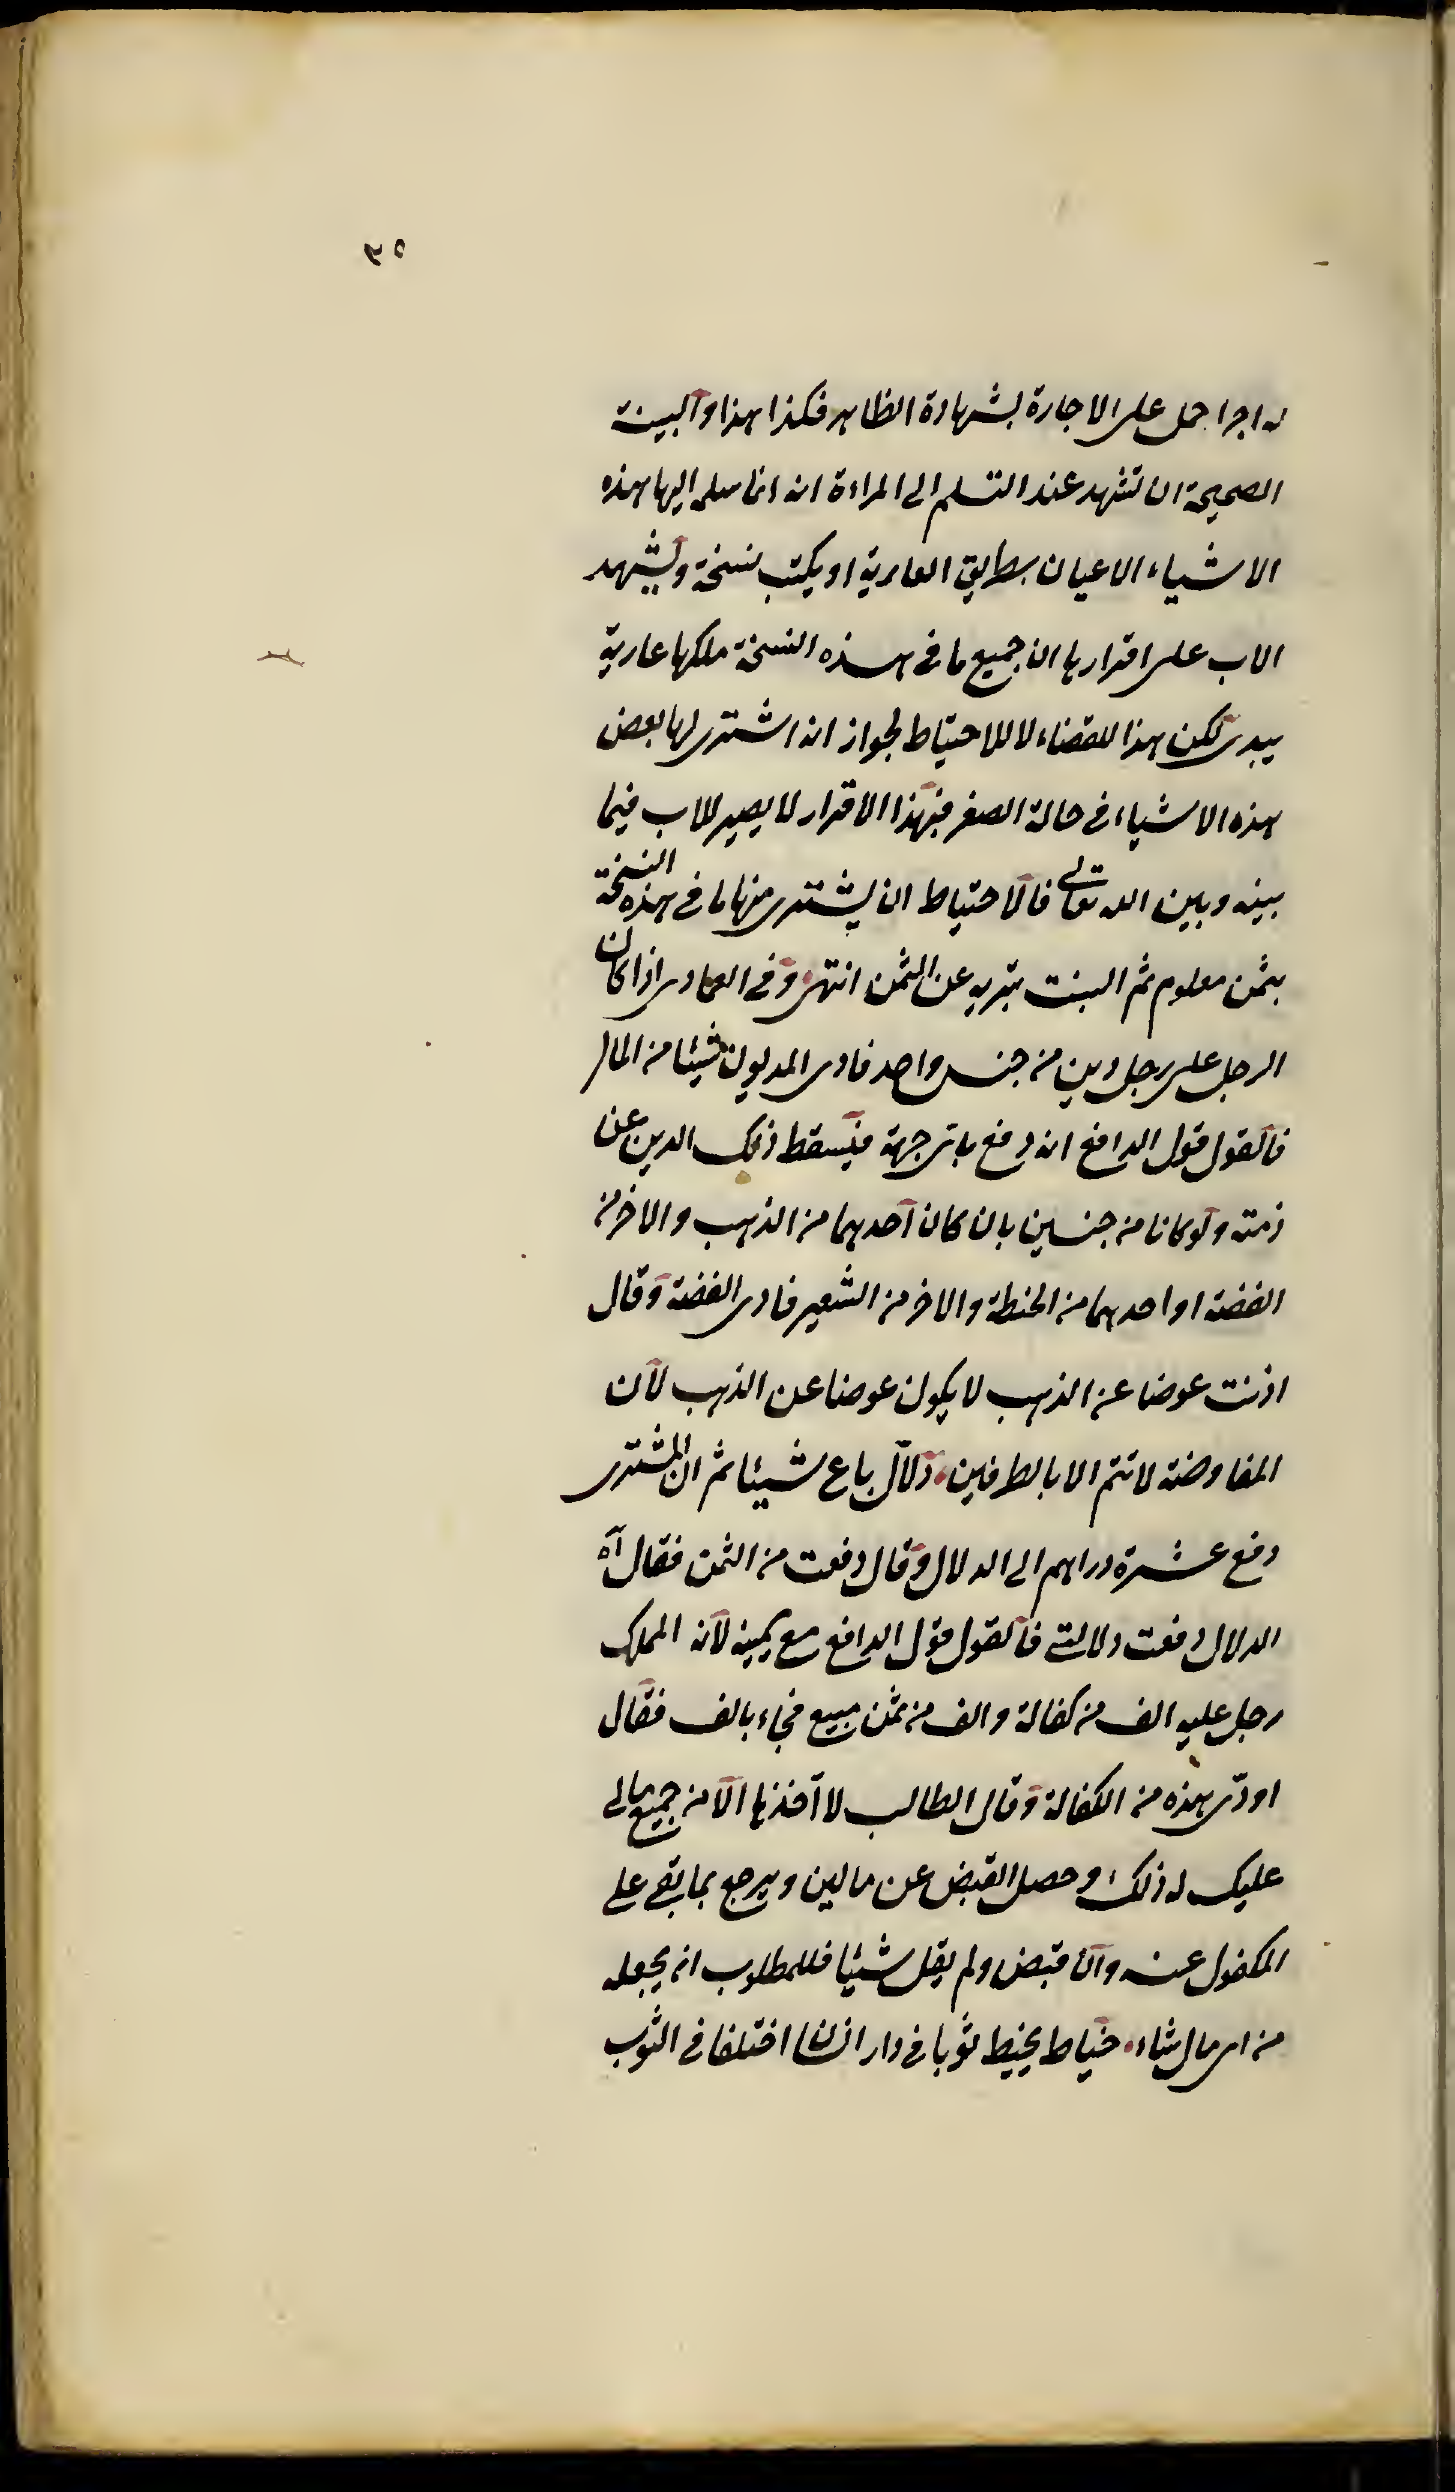 ٣٥
له اجرا حمل على الاجارة بشهادة الظاهر فكذا هذا والبينة
الصحيحة ان تشهد عند التسليم الى المراءة انه انما سلم اليها هذه
الاشياء الاعيان بطريق العارية او يكتب نسخة ويشهد
الاب على اقرارها ان جميع ما في هذه النسخة ملكها عارية
بيدى لكن هذا للقضاء لا للاحتياط لجواز انه اشترى لها بعض
هذه الاشياء في حالة الصغر فبهذا الاقرار لا يصير للاب فيما
بينه وبين الله تعالى فالاحتياط ان يشترى منها ما في هذه النسخة
بثمن معلوم ثم البنت تبريه عن الثمن انتهى وفي العمادى اذا كان
الرجل على رجل دين من جنس واحد فادى المديون شيئا من المال
فالقول قول الدافع انه دفع باى جهة فيسقط ذلك الدين عن
ذمته ولو كانا من جنسين بان كان احدهما من الذهب والاخر من
الفضة او احدهما من الحنطة والاخر من الشعير فادى الفضة وقال
اذنت عوضا عن الذهب لا يكون عوضا عن الذهب لان
المفاوضة لا تتم الا بالطرفين دلال باع شيئا ثم ان المشترى
دفع عشرة دراهم الى الدلال وقال دفعت من الثمن فقال له
الدلال دفعت دلالتى فالقول قول الدافع مع يمينه لانه المملك
رجل عليه الف من كفالة والف من ثمن مبيع فجاء بالف فقال
اودى هذه من الكفالة وقال الطالب لا آخذها الا من جميع مالى
عليك له ذلك وحصل القبض عن مالين ويرجع بما بقى على
المكفول عنه وان قبض ولم يقل شيئا فللمطلوب ان يجعله
من اى مال شاء خياط يخيط ثوبا في دار انسان اختلفا في الثوب